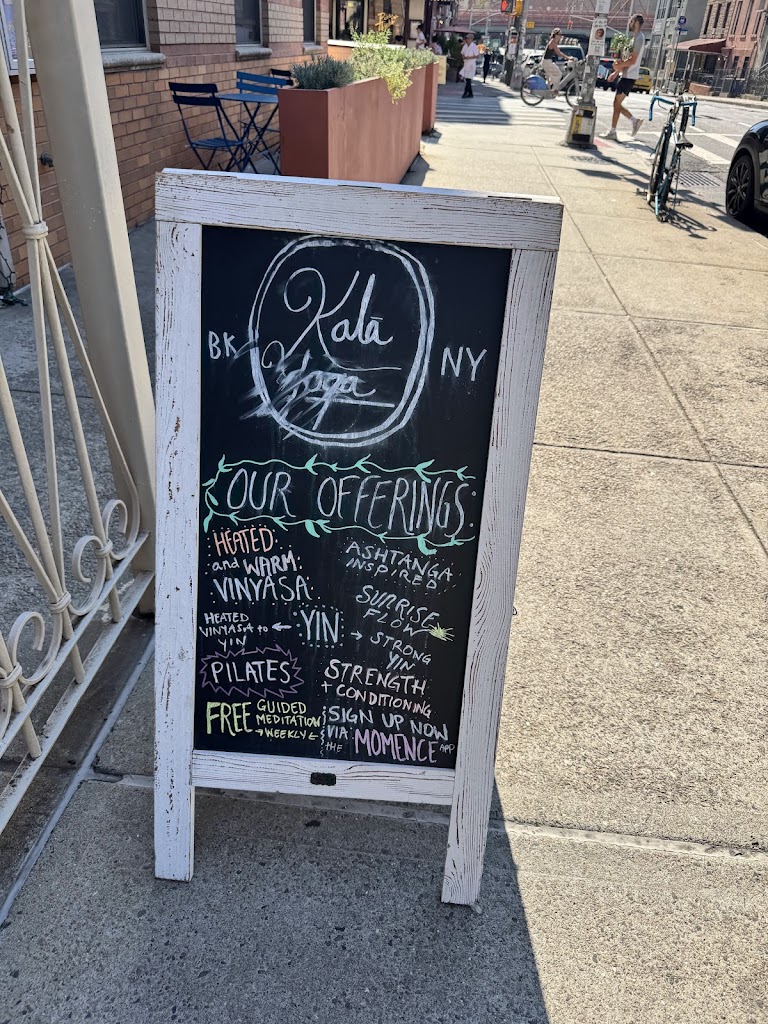 Kalā
BK
NY
Yoga
OUR OFFERINGS:
HEATED
and WARM
VINYASA
ASHTANGA
INSPIRED
SUNRISE
FLOW
HEATED
VINYASA to
YIN
← YIN →
STRONG
YIN
PILATES
STRENGTH
+ CONDITIONING
FREE GUIDED
MEDITATION
→WEEKLY←
SIGN UP NOW
VIA
THE
MOMENCE APP